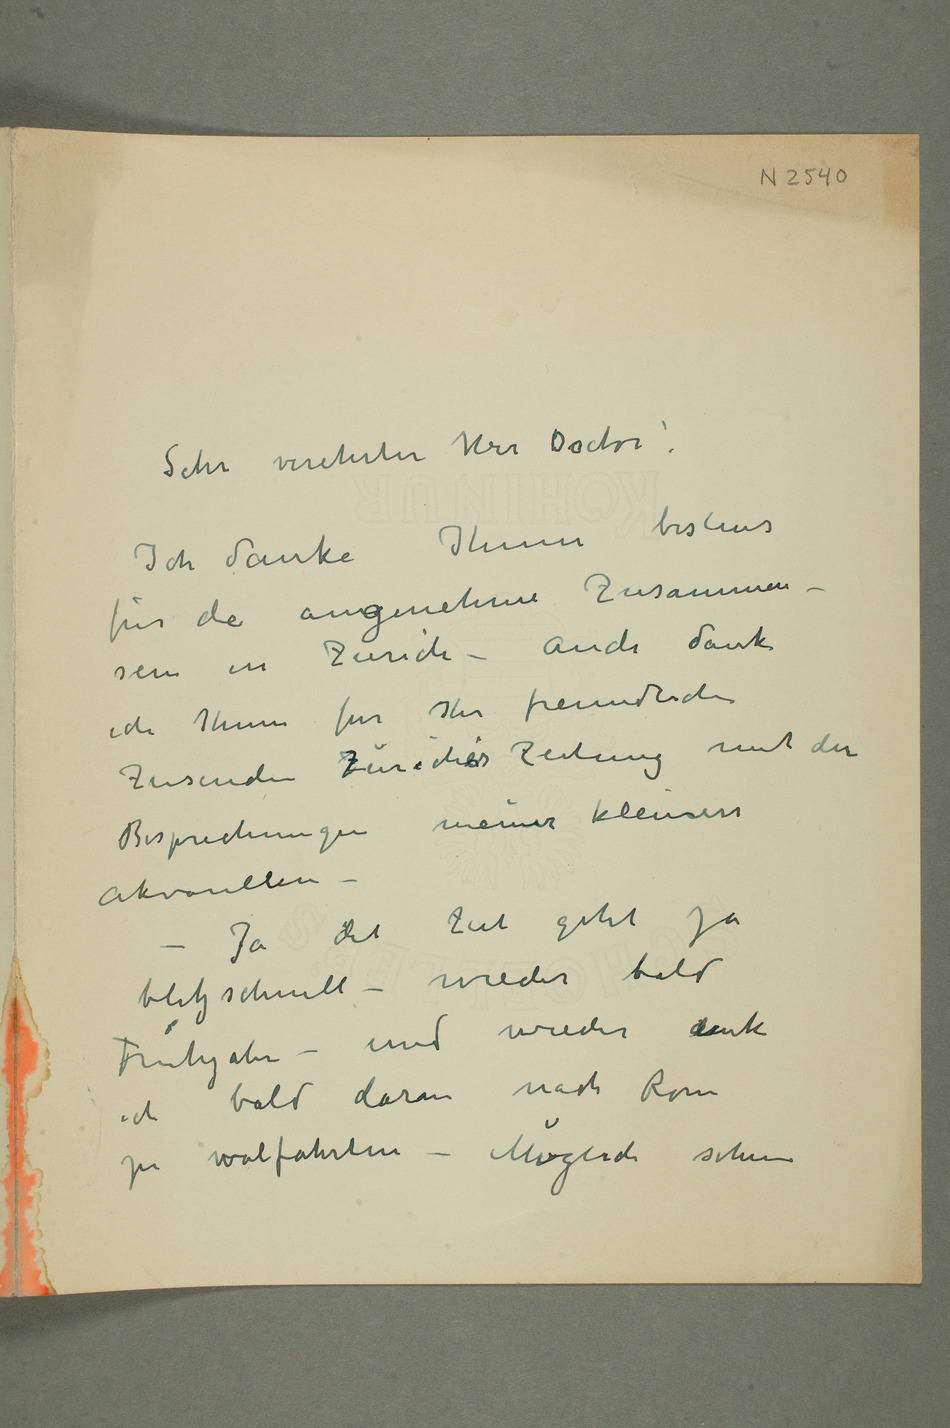 N 2540
Sehr verehrter Herr Doctor!
Ich danke Ihnen bestens
für da angenehme Zusammen-
sein in Zürich – Auch dank
ich Ihnen fur Ihr freundliche
Zusenden Züricher Zeitung mit der
Besprechungen meiner kleinere
Akvarellen –
– Ja det Zeit geht ja
blitzschnell – wieder bald
Frühjahr – und wieder denk
ich bald daran nach Rom
zu walfahrten – Möglich schon
KOHINUR